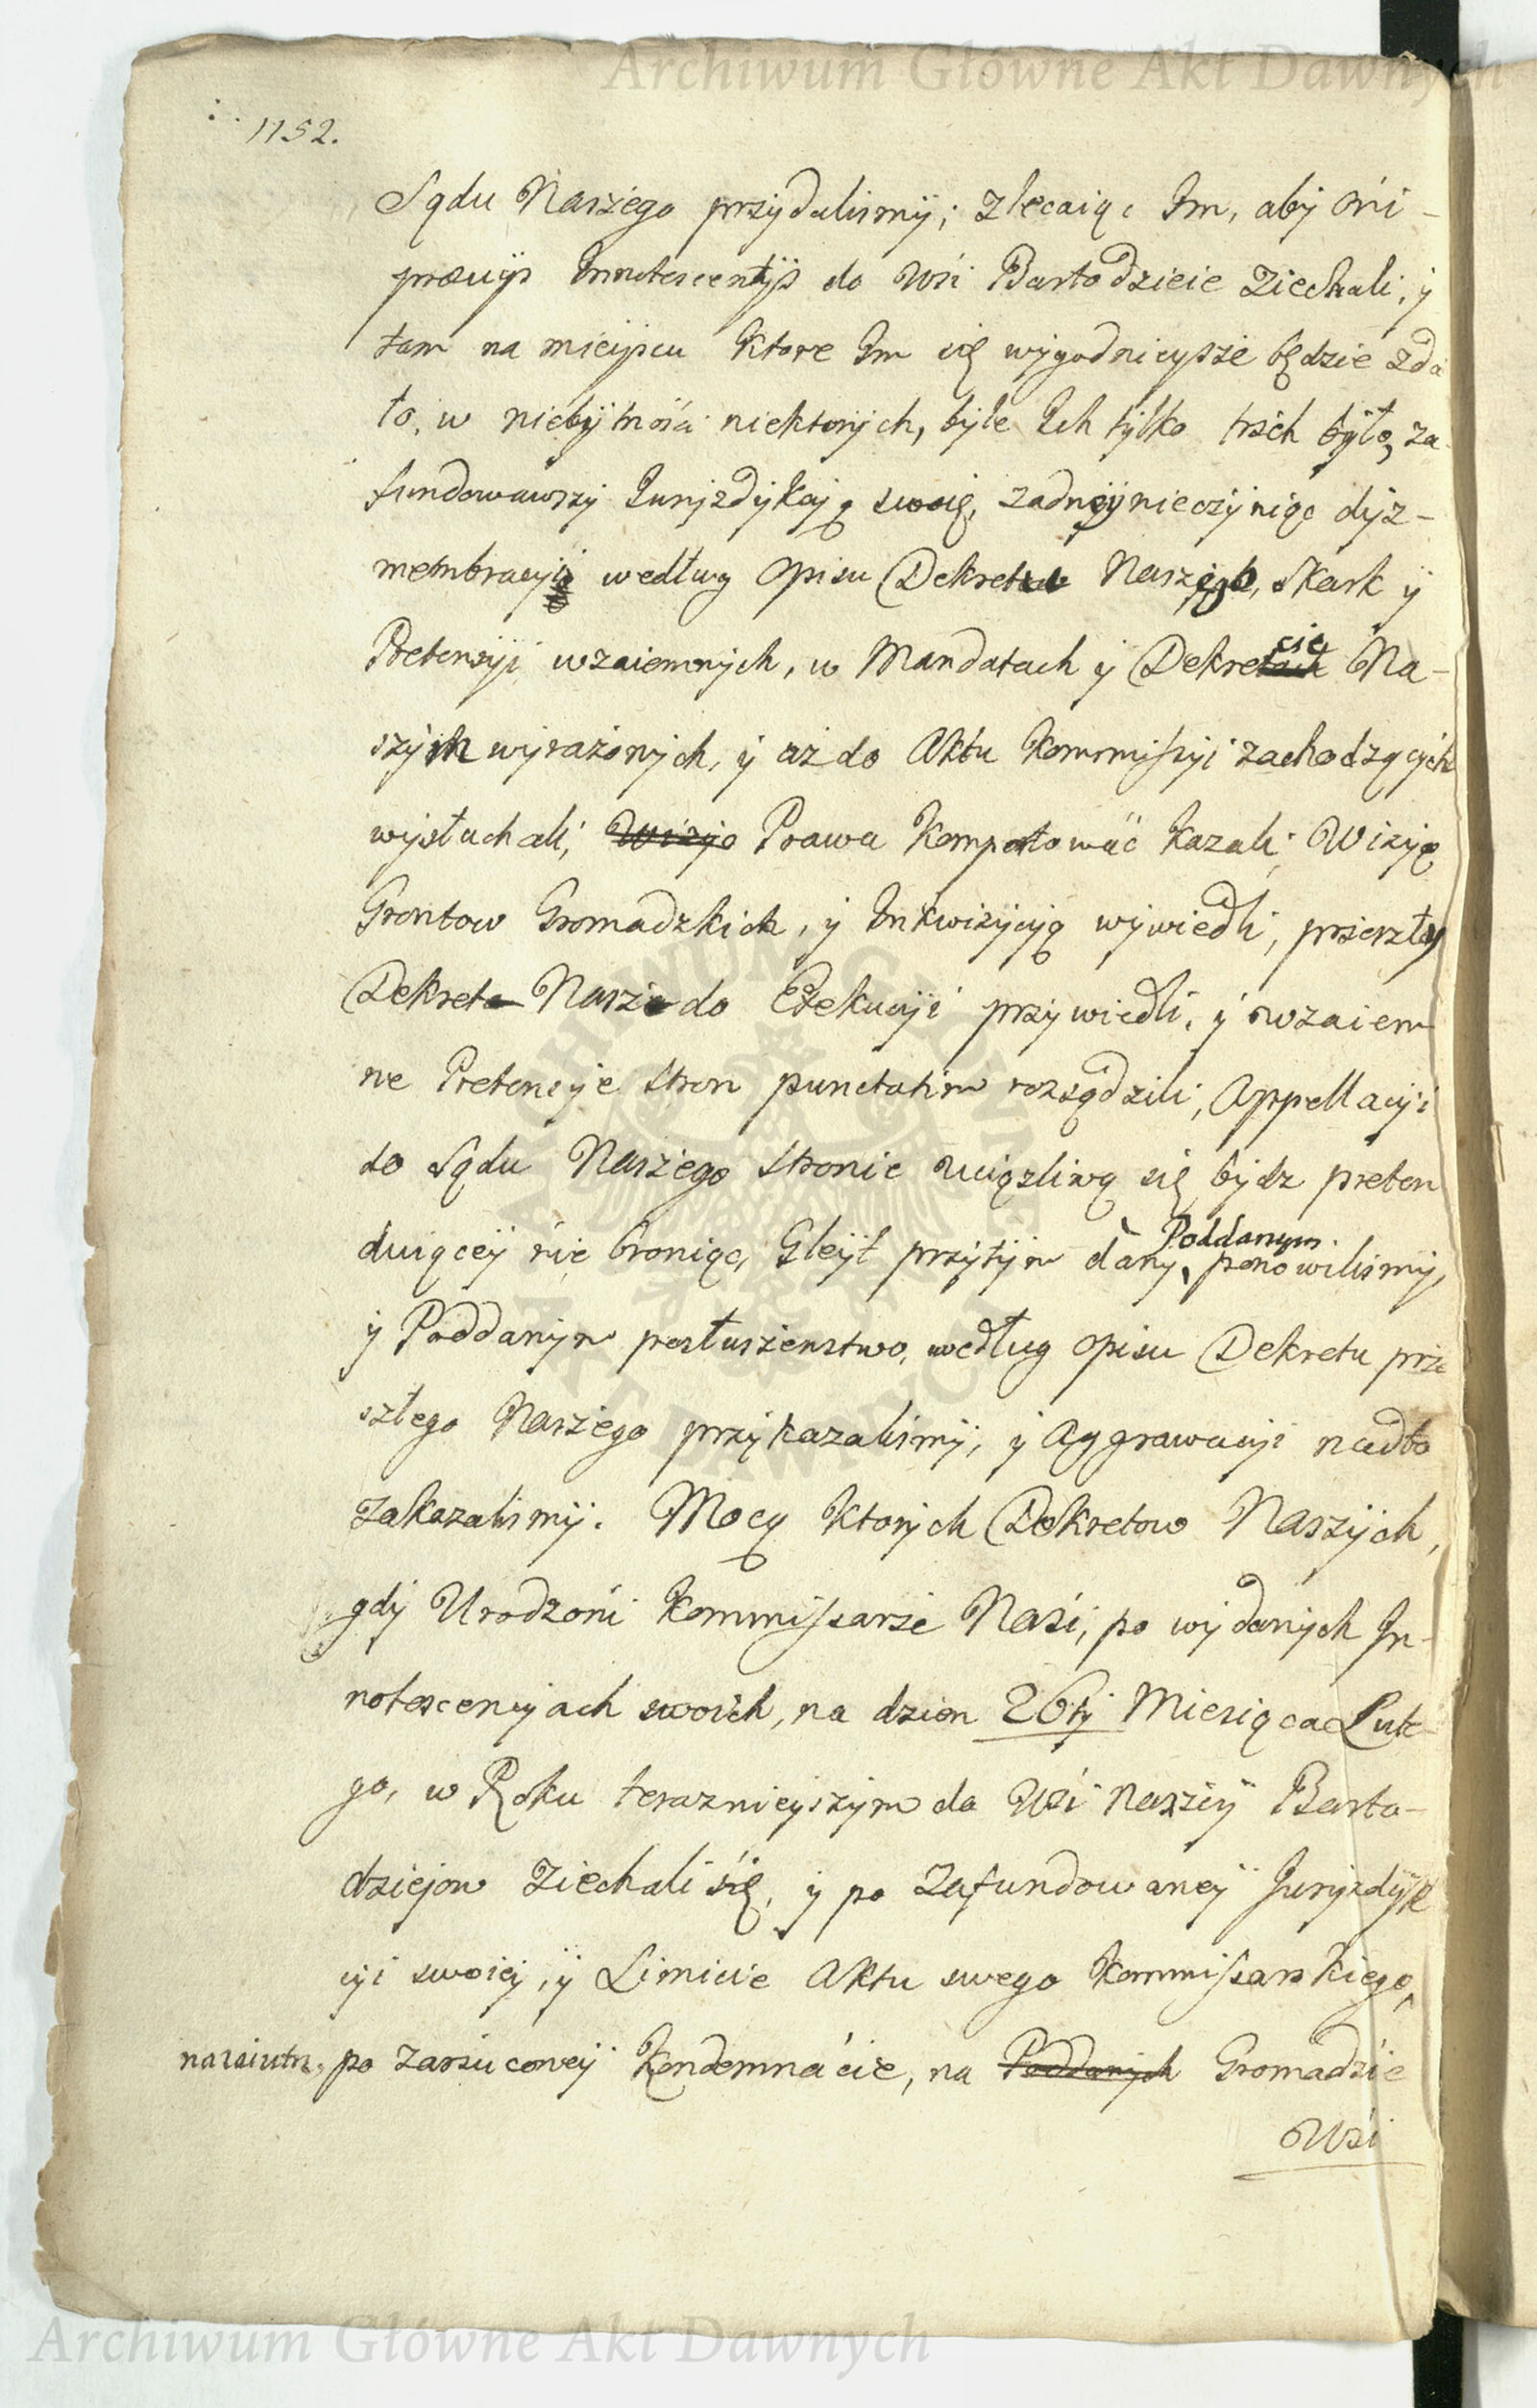 Archiwum Główne Akt Dawnych
1152.
Sądu Naszego przydalismÿ; zlecaiąc Jm, abÿ oni
prævÿs Innotescentÿs do Wsi Bartodzieie ziechali, ÿ
tam na mieÿscu ktore Jm się wÿgodnieÿsze będzie zda
ło, w niebÿtnosci niektorÿch, bÿle Ich tÿlko trzch bÿło, za-
fundowawszÿ Iurÿzdÿkcÿą swoię, zadneÿ nieczÿniąc dÿz-
membracÿi według opisu Dekretu Naszego, Skark ÿ
Pretensÿi wzaiemnÿch, w Mandatach ÿ Dekretach cie Na-
szÿm wÿrażonÿch, ÿ aż do Aktu Kommissÿi zachodzącÿch
wÿsłuchali; Wizÿą Prawa Komportować kazali, Wizÿą
Grontow Gromadzkich, ÿ Inkwizÿcÿą wÿwiedli, przeszłÿ
Dekret Nasz do Exekucÿi przÿwiedli, ÿ wzaiem
ne Pretensÿe stron punctatim rozsądzili, Appellacÿi
do Sądu Naszego stronie uciązliwą się bÿdz preten
duiąceÿ nie broniąc, Gleÿt przÿtÿm danÿ Poddanym ponowilismÿ,
ÿ Poddanÿm posłuszenstwo, według opisu Dekretu prze
szłego Naszego przÿkazalismÿ, ÿ Aggrawacÿi nadto
zakazalismÿ. Mocą ktorÿch Dekretow Naszÿch,
gdÿ Urodzoni Kommissarze Nasi, po wÿdanÿch In-
notescencÿach swoich, na dzien 26tÿ Miesiąca Lute-
go, w Roku terazniejszÿm do Wsi Naszeÿ Barto-
dziejow ziechali się, ÿ po zafundowaneÿ Jurÿzdÿk
cÿi swoieÿ, ÿ Limicie Aktu swego Kommissarskiego,
naiaiutrz, po zarzuconeÿ Kondemnacie, na Poddanÿch Gromadzie
Wsi
Archiwum Główne Akt Dawnych